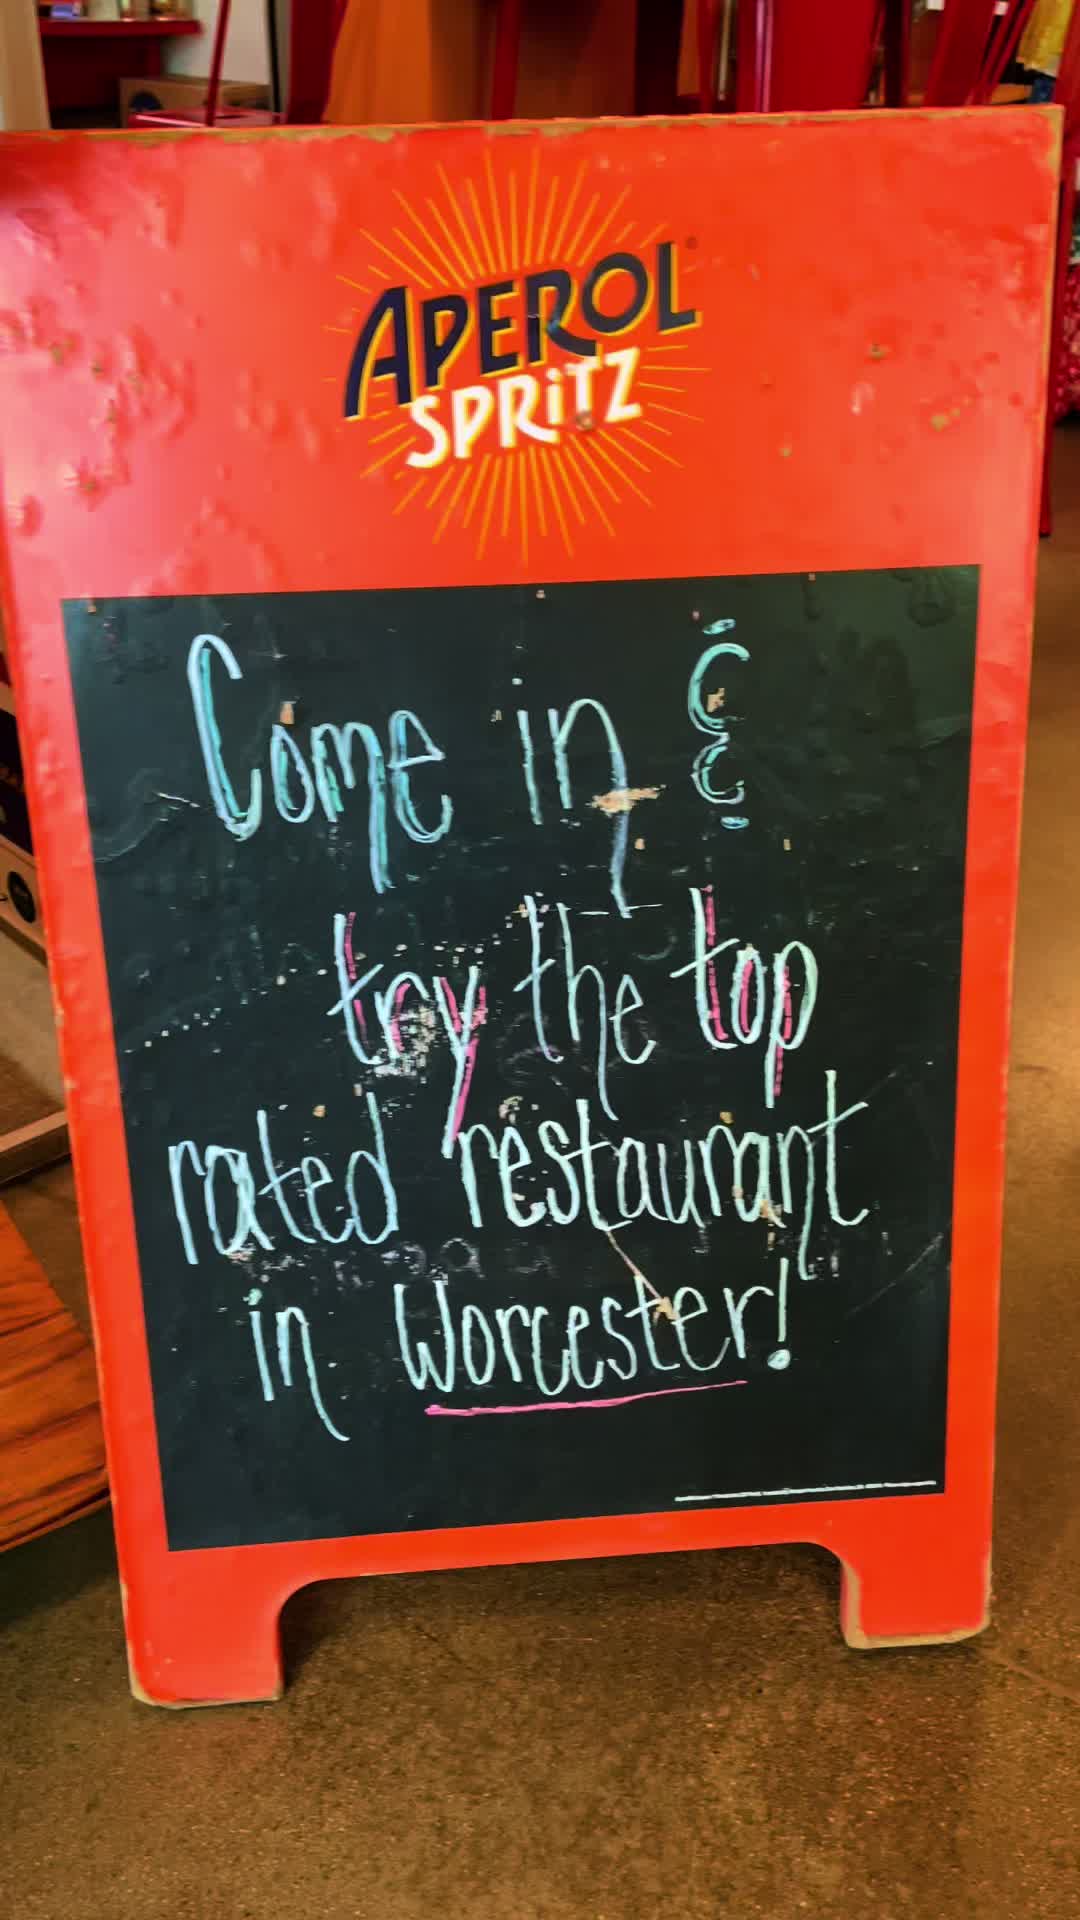 APEROL
SPRiTZ
Come in &
try the top
rated restaurant
in Worcester!